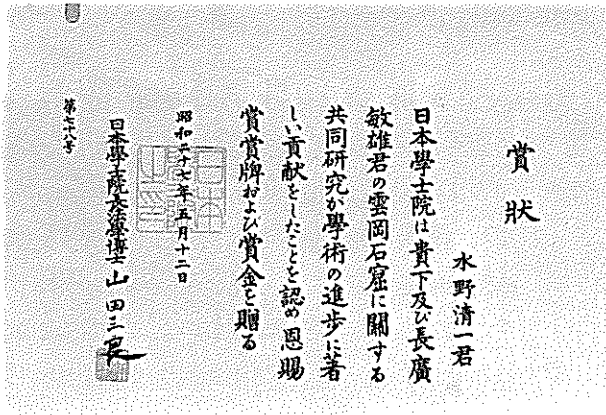 賞狀
水野清一君
日本學士院は貴下及び長廣
敏雄君の雲岡石窟に關する
共同研究が學術の進歩に著
しい貢献をしたことを認め恩賜
賞賞牌および賞金を贈る
昭和二十七年五月十二日
日本學士院長法學博士 山田三良
第七十八号